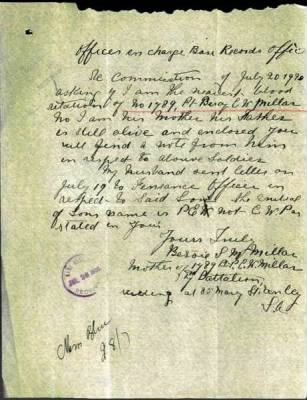 Officer in charge Base Records Office
Re Communication of July 20 1920
asking if I am the nearest blood
relation of No 1789, Pt Percy C.W. Millar
No I am his Mother his Father
is still alive and enclosed you
will find a note from him
in respect to above Soldier
My Husband sent letter on
July 19 to Pensions Officer in
respect to said Son. The
of Sons name is P.E.W. not C.W. Per
stated in Your
Yours Truly
S Millar
Mother of 1789 Pt P.E.W. Millar
Battalion
residing at 35 Mary St Unley
S.A.